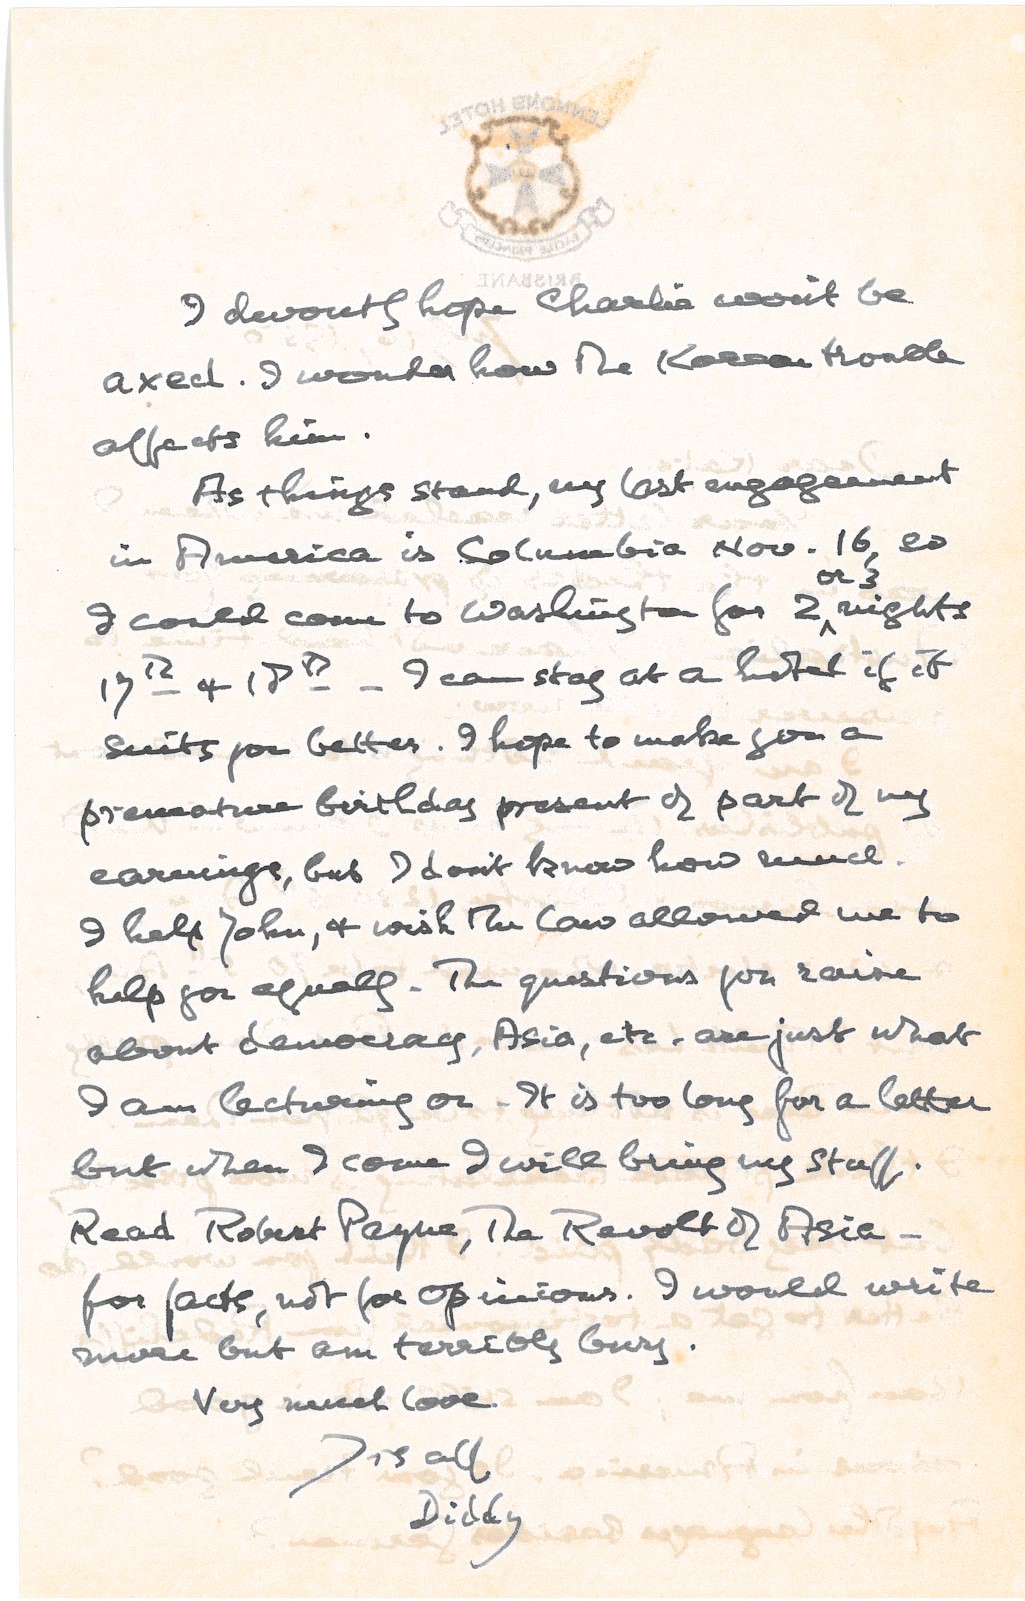 LENNONS HOTEL
FACILE PRINCEPS
BRISBANE
I devoutly hope Charlie won't be
axed. I wonder how the Korean trouble
affects him.
As things stand, my last engagement
in America is Columbia Nov. 16, so
I could come to Washington for 2 or 3 nights
17th & 18th – I can stay at a hotel if it
suits you better. I hope to make you a
premature birthday present of part of my
earnings, but I don't know how much.
I help John, & wish the law allowed me to
help you equally. The questions you raise
about democracy, Asia, etc. are just what
I am lecturing on. It is too long for a letter
but when I come I will bring my stuff.
Read Robert Payne, The Revolt of Asia –
for facts, not for opinions. I would write
more but am terribly busy.
Very much love.
Diddy